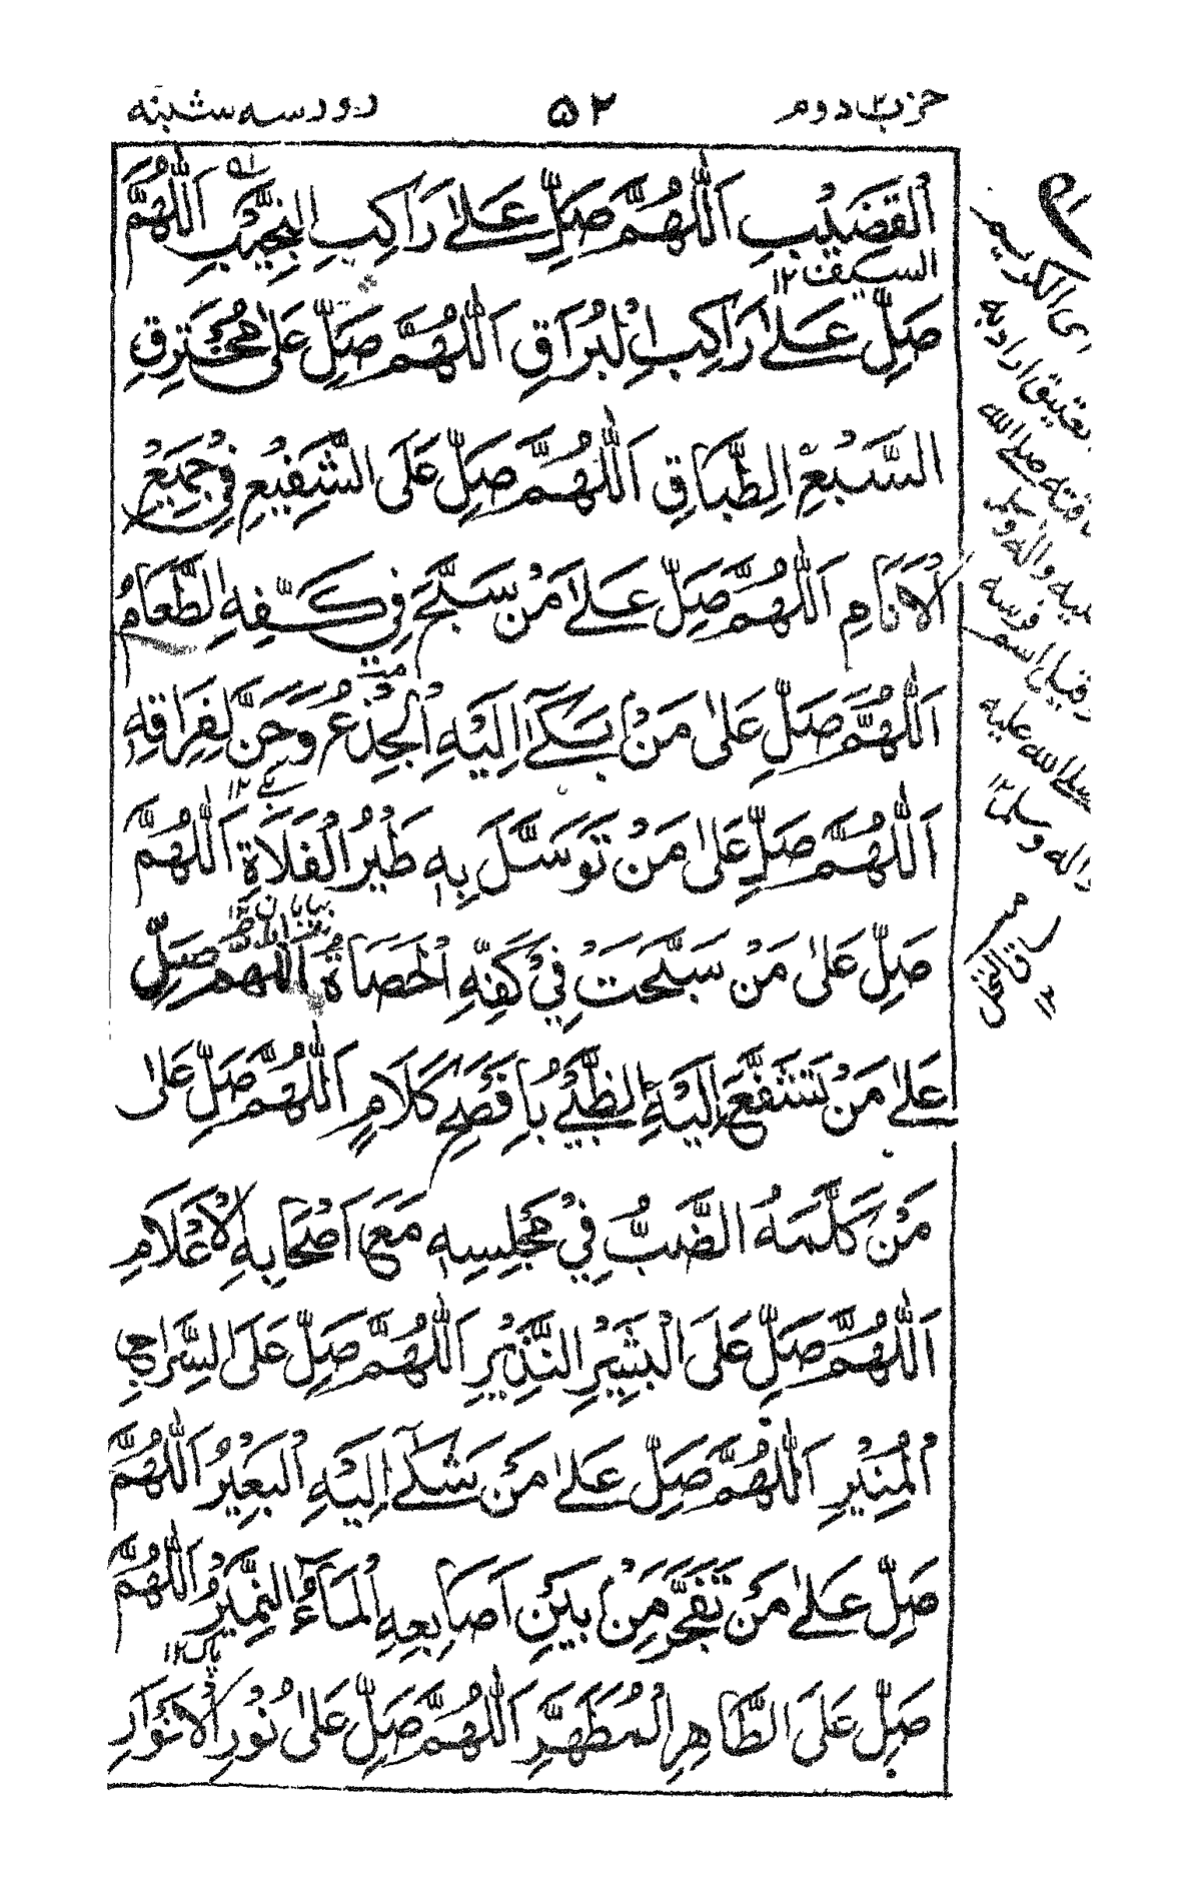 حزب دوم ۵۲ روز سه شنبه
الْقَضِيْبِ اَللّٰهُمَّ صَلِّ عَلٰى رَاكِبِ النَّجِيْبِ اَللّٰهُمَّ
السيف ۱۲
صَلِّ عَلٰى رَاكِبِ الْبُرَاقِ اَللّٰهُمَّ صَلِّ عَلٰى مُخْتَرِقِ
السَّبْعِ الطِّبَاقِ اَللّٰهُمَّ صَلِّ عَلَى الشَّفِيْعِ فِيْ جَمِيْعِ
الْاَنَامِ اَللّٰهُمَّ صَلِّ عَلٰى مَنْ سَبَّحَ فِيْ كَفِّهِ الطَّعَامُ
اَللّٰهُمَّ صَلِّ عَلٰى مَنْ بَكٰٓى اِلَيْهِ الْجِذْعُ وَحَنَّ لِفِرَاقِهٖ
اَللّٰهُمَّ صَلِّ عَلٰى مَنْ تَوَسَّلَ بِهٖ طَيْرُ الْفَلَاةِ اَللّٰهُمَّ
صَلِّ عَلٰى مَنْ سَبَّحَتْ فِيْ كَفِّهِ الْحَصَاةُ اَللّٰهُمَّ صَلِّ
عَلٰى مَنْ تَشَفَّعَ اِلَيْهِ الظَّبْيُ بِاَفْصَحِ كَلَامٍ اَللّٰهُمَّ صَلِّ عَلٰى
مَنْ كَلَّمَهُ الضَّبُّ فِيْ مَجْلِسِهٖ مَعَ اَصْحَابِهِ الْاَعْلَامِ
اَللّٰهُمَّ صَلِّ عَلَى الْبَشِيْرِ النَّذِيْرِ اَللّٰهُمَّ صَلِّ عَلَى السِّرَاجِ
الْمُنِيْرِ اَللّٰهُمَّ صَلِّ عَلٰى مَنْ شَكٰٓى اِلَيْهِ الْبَعِيْرُ اَللّٰهُمَّ
صَلِّ عَلٰى مَنْ تَفَجَّرَ مِنْ بَيْنِ اَصَابِعِهِ الْمَآءُ النَّمِيْرُ اَللّٰهُمَّ
پاک ۱۲
صَلِّ عَلَى الطَّاهِرِ الْمُطَهَّرِ اَللّٰهُمَّ صَلِّ عَلٰى نُوْرِ الْاَنْوَارِ